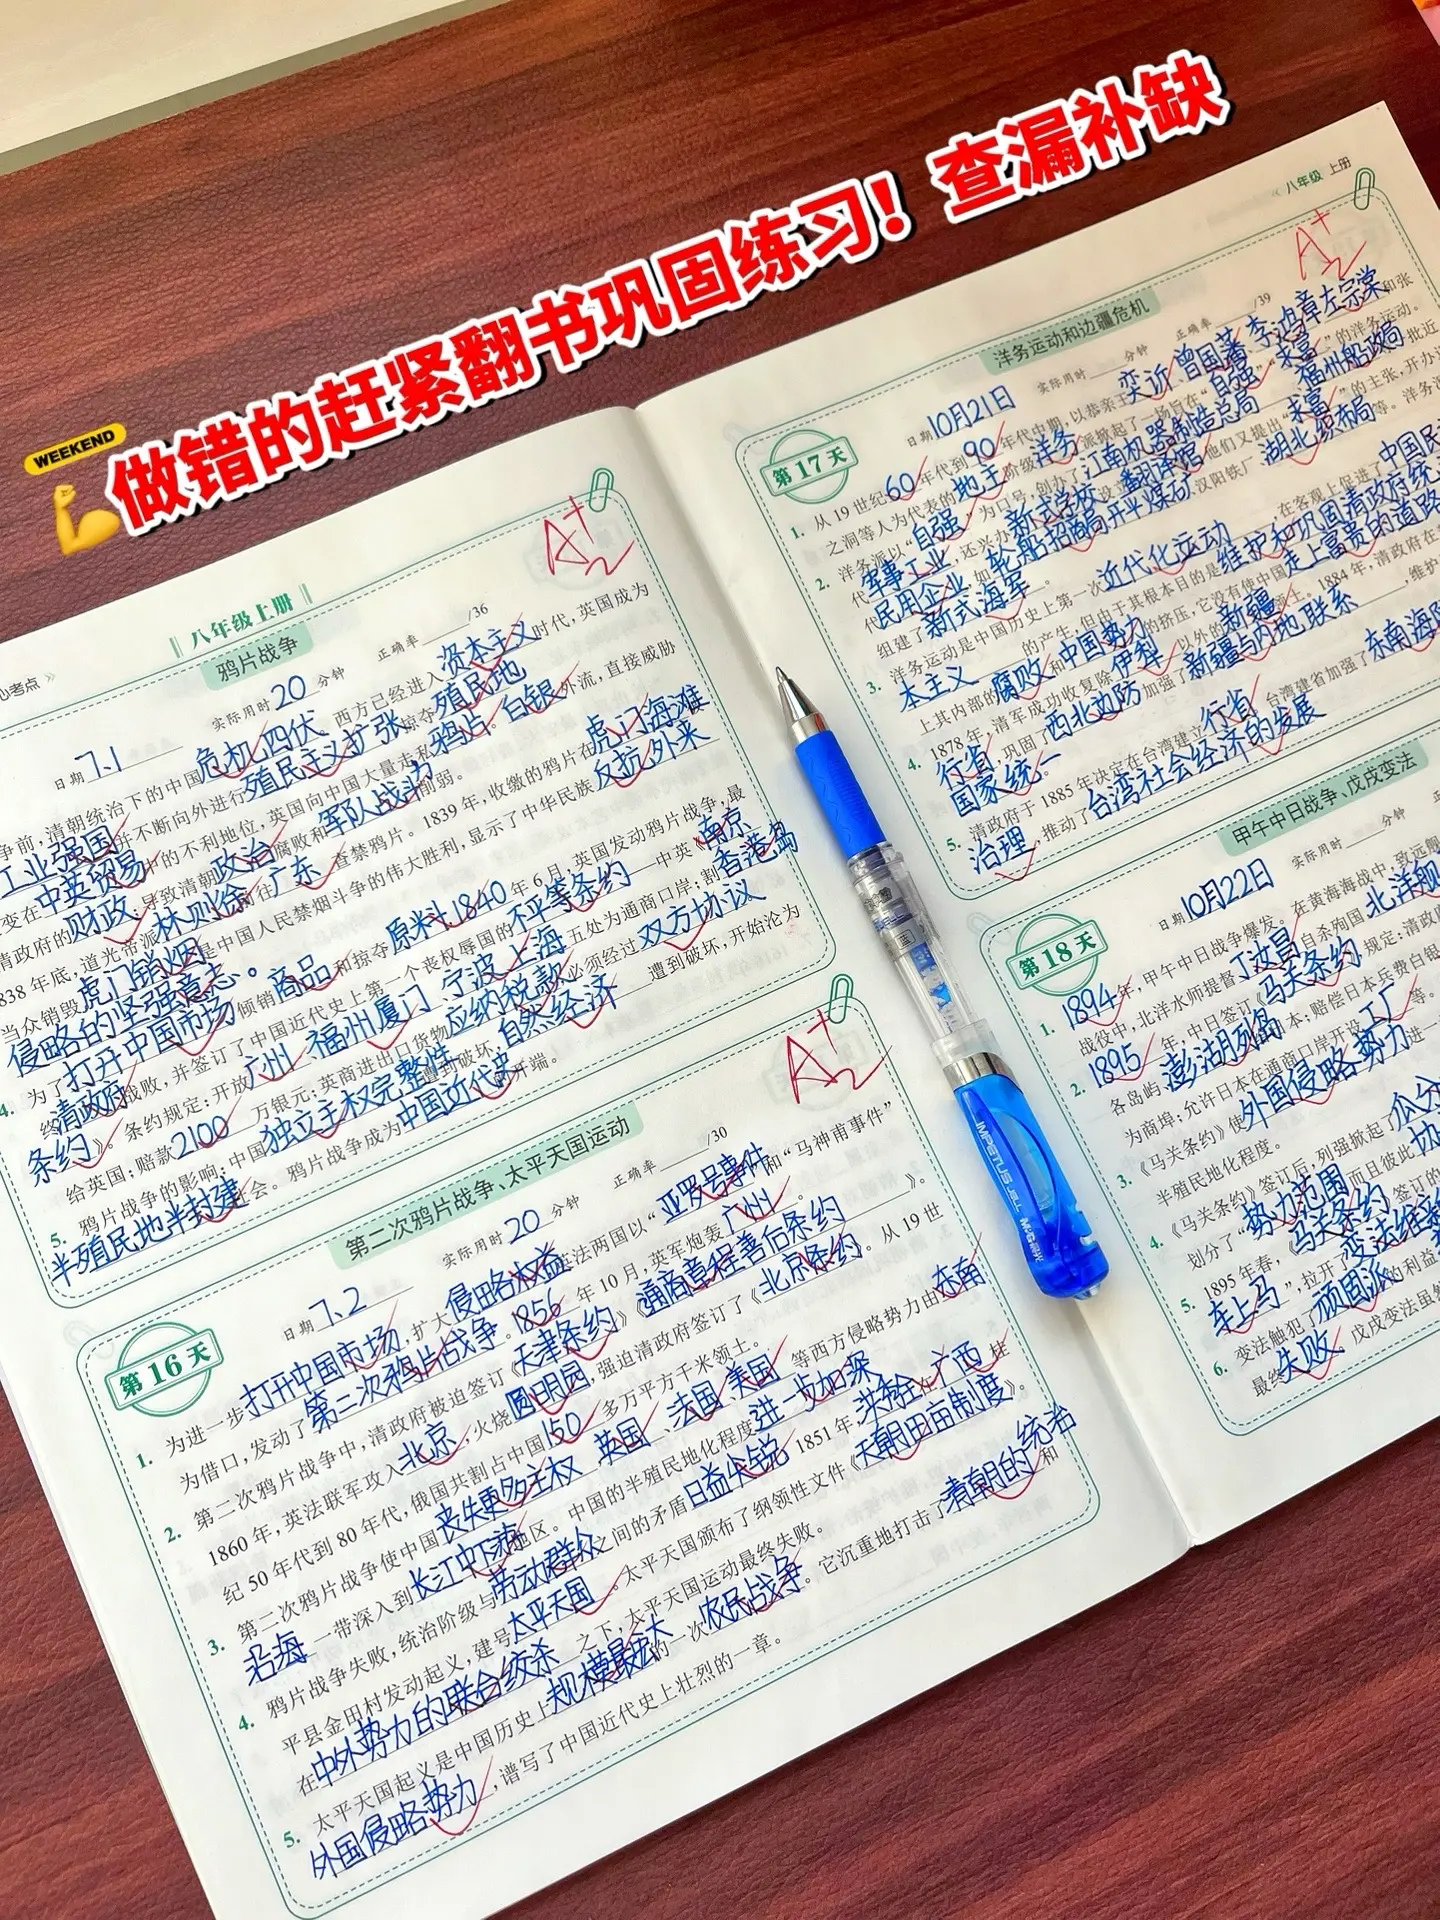 做错的赶紧翻书巩固练习！查漏补缺
WEEKEND
心考点
八年级上册
鸦片战争
A+
日期 7.1 实际用时 20 分钟 正确率 /36
争前，清朝统治下的中国危机四伏。西方已经进入资本主义时代，英国成为
工业强国，并不断向外进行殖民主义扩张，掠夺殖民地
变在中英贸易中的不利地位，英国向中国大量走私鸦片。白银外流，直接威胁
清政府的财政；导致清朝政治腐败和军队战斗力削弱。
838年底，道光帝派林则徐前往广东查禁鸦片。1839年，收缴的鸦片在虎门海滩
当众销毁。虎门销烟是中国人民禁烟斗争的伟大胜利，显示了中华民族反抗外来
侵略的坚强意志。
4. 为了打开中国市场，倾销商品和掠夺原料，1840年6月，英国发动鸦片战争，最
终清政府战败，并签订了中国近代史上第一个丧权辱国的不平等条约——中英《南京
条约》。条约规定：开放广州、福州、厦门、宁波、上海五处为通商口岸；割香港岛
给英国；赔款2100万银元；英商进出口货物应纳税款必须经过双方协议
5. 鸦片战争的影响：中国独立主权完整性遭到破坏，自然经济遭到破坏，开始沦为
半殖民地半封建社会。鸦片战争成为中国近代史的开端。
第二次鸦片战争、太平天国运动
A+
第16天
日期 7.2 实际用时 20 分钟 正确率 /30
1. 为进一步打开中国市场，扩大侵略权益，英法两国以“亚罗号事件”和“马神甫事件”
为借口，发动了第二次鸦片战争。1856年10月，英军炮轰广州。
2. 第二次鸦片战争中，清政府被迫签订《天津条约》《通商章程善后条约》。
1860年，英法联军攻入北京，火烧圆明园，强迫清政府签订了《北京条约》。从19世
纪50年代到80年代，俄国共割占中国150多万平方千米领土。
3. 第二次鸦片战争使中国丧失更多主权，英国、法国、美国等西方侵略势力由东南
沿海一带深入到长江中下游地区。中国的半殖民地化程度进一步加深
4. 鸦片战争失败，统治阶级与劳动群众之间的矛盾日益尖锐。1851年，洪秀全在广西桂
平县金田村发动起义，建号太平天国。太平天国颁布了纲领性文件《天朝田亩制度》。
在中外势力的联合绞杀之下，太平天国运动最终失败。
5. 太平天国起义是中国历史上规模最宏大的一次农民战争。它沉重地打击了清朝的统治和
外国侵略势力，谱写了中国近代史上壮烈的一章。
八年级 上册
洋务运动和边疆危机
A+
第17天
日期 10月21日 实际用时 分钟 正确率 /39
1. 从19世纪60年代到90年代中期，以恭亲王奕訢、曾国藩、李鸿章、左宗棠和张
之洞等人为代表的地主阶级洋务派掀起了一场旨在“自强”“求富”的洋务运动。
2. 洋务派以“自强”为口号，创办了江南机器制造总局、福州船政局
军事工业，还兴办新式学校，翻译馆他们又提出“求富”的主张，开办
民用企业，如轮船招商局、开平煤矿、汉阳铁厂、湖北织布局等。洋务派
组建了新式海军。
3. 洋务运动是中国历史上第一次近代化运动。在客观上促进了中国民
本主义的产生，但由于其根本目的是维护和巩固清政府统
上其内部的腐败和中国势力的挤压，它没有使中国走上富贵的道路
4. 1878年，清军成功收复除伊犁以外的新疆领土。1884年，清政府在
行省，巩固了西北边防，加强了新疆与内地联系，维护
国家统一
5. 清政府于1885年决定在台湾建立行省，台湾建省加强了东南海防
治理，推动了台湾社会经济的发展
甲午中日战争、戊戌变法
第18天
日期 10月22日 实际用时 分钟
1. 1894年，甲午中日战争爆发。在黄海海战中，致远舰
战役中，北洋水师提督丁汝昌自杀殉国，北洋舰
2. 1895年，中日签订《马关条约》规定：清政府
各岛屿、澎湖列岛给日本；赔偿日本兵费白银
为商埠；允许日本在通商口岸开设工厂等。
3. 《马关条约》使外国侵略势力进一
半殖民地化程度。
4. 《马关条约》签订后，列强掀起了瓜分
划分了“势力范围”，而且彼此协
5. 1895年春，《马关条约》签订的
车上书”，拉开了变法维新
6. 变法触犯了顽固派的利益
最终失败。戊戌变法虽然